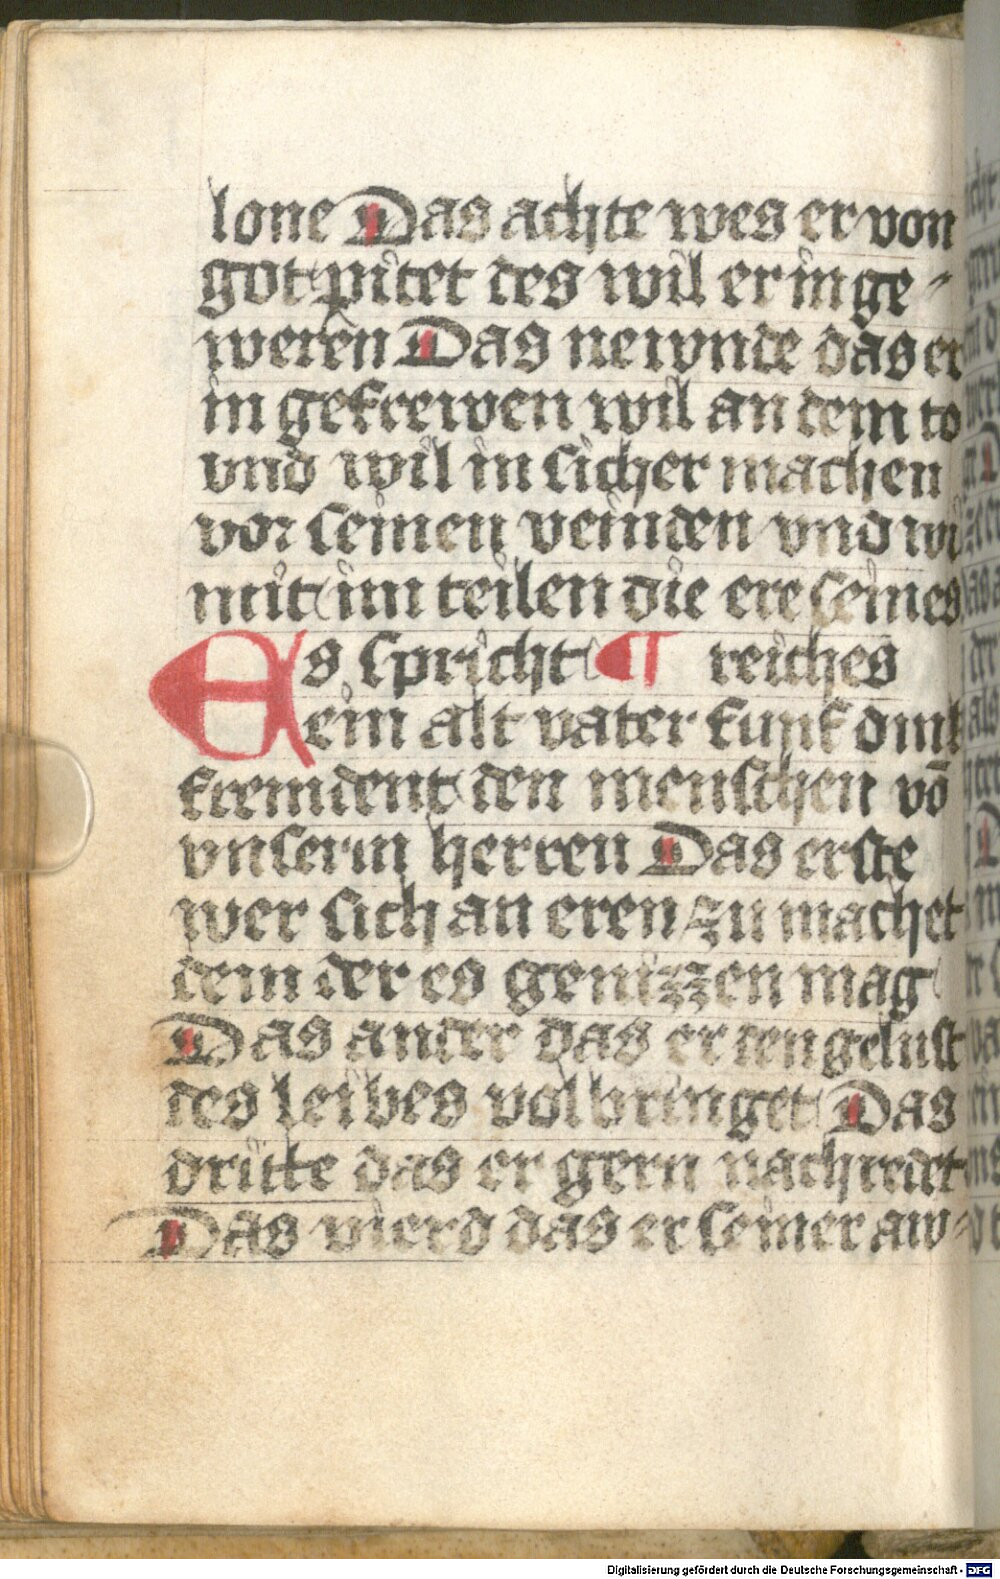 lone Das achte wes er von
got pitet des wil er in ge⸗
weren Das newnde das er
in gefrewen wil an dem to
vnd wil in sicher machen
vor seinen veinden vnd wi
mit im teilen die ere seines
Es spricht ¶ reiches
ein alt vater funf dink
fremdent den menschen vō
vnserm herren Das erste
wer sich an eren zu machet
dem der es genizzen mag
Das ander das er den gelust
des leibes volbringet Das
dritte das er gern nachredet
Das vierd das er seiner aw⸗
Digitalisierung gefördert durch die Deutsche Forschungsgemeinschaft - DFG